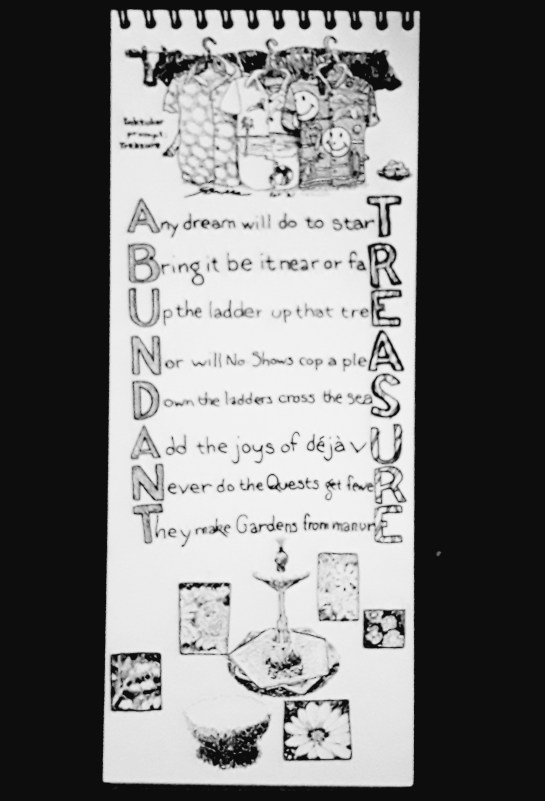 Inktober
prompt:
Treasure
Any dream will do to starT
Bring it be it near or faR
Up the ladder up that treE
Nor will No Shows cop a pleA
Down the ladders cross the seaS
Add the joys of déjà vU
Never do the Quests get feweR
They make Gardens from manurE